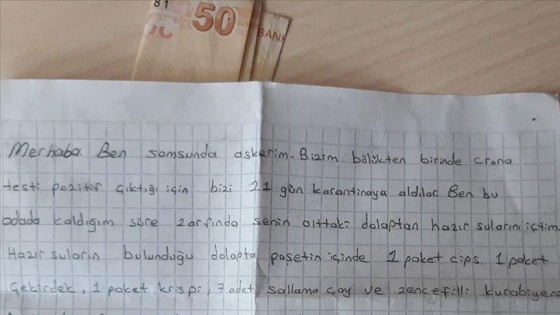 81
50
BANK
Merhaba Ben samsunda askerim. Bizim bölükten birinde crona
testi pozitif çıktığı için bizi 21 gün karantinaya aldılar Ben bu
odada kaldığım süre zarfında senin alttaki dolaptan hazır sularını içtim.
Hazır suların bulunduğu dolapta poşetin içinde 1 paket cips 1 paket
çekirdek, 1 paket krispi, 7 adet sallama çay ve zencefilli kurabiyeni